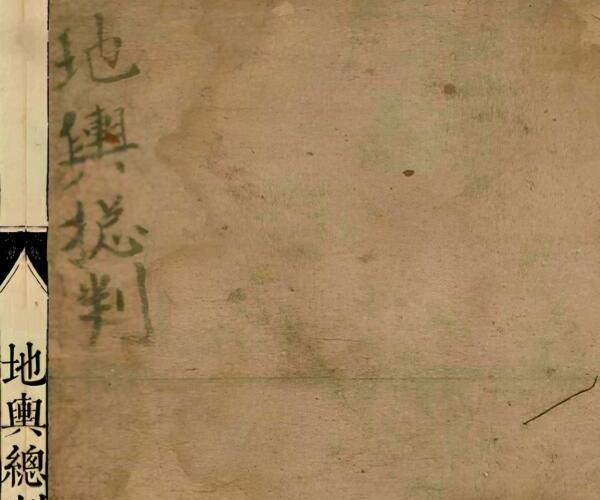 地輿捴判
地輿總